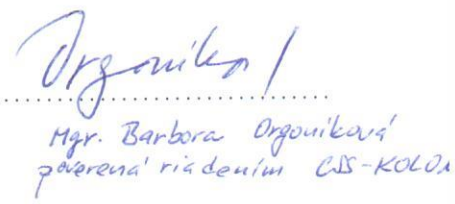 Orgoniková
....................................
Mgr. Barbora Orgoniková
poverená riadením CSS-KOLO